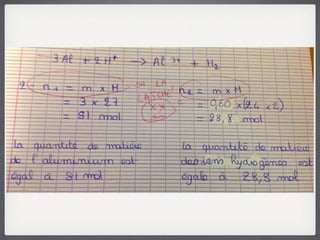 3Al + 2H⁺ → Al ³⁺ + H₂
2- n₁ = m x M
= 3 x 27
= 81 mol
ou LA
n₂ = m x M
= 0,60 x (24 x 2)
= 28,8 mol
La quantité de matière
de l'aluminium est
égal à 81 mol
La quantité de matière
des ions hydrogènes est
égale à 28,8 mol